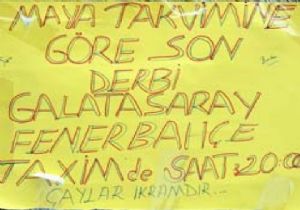 MAYA TAKVİMİNE
GÖRE SON
DERBİ
GALATASARAY
FENERBAHÇE
TAXİM'de SAAT:20:00
ÇAYLAR İKRAMDIR...